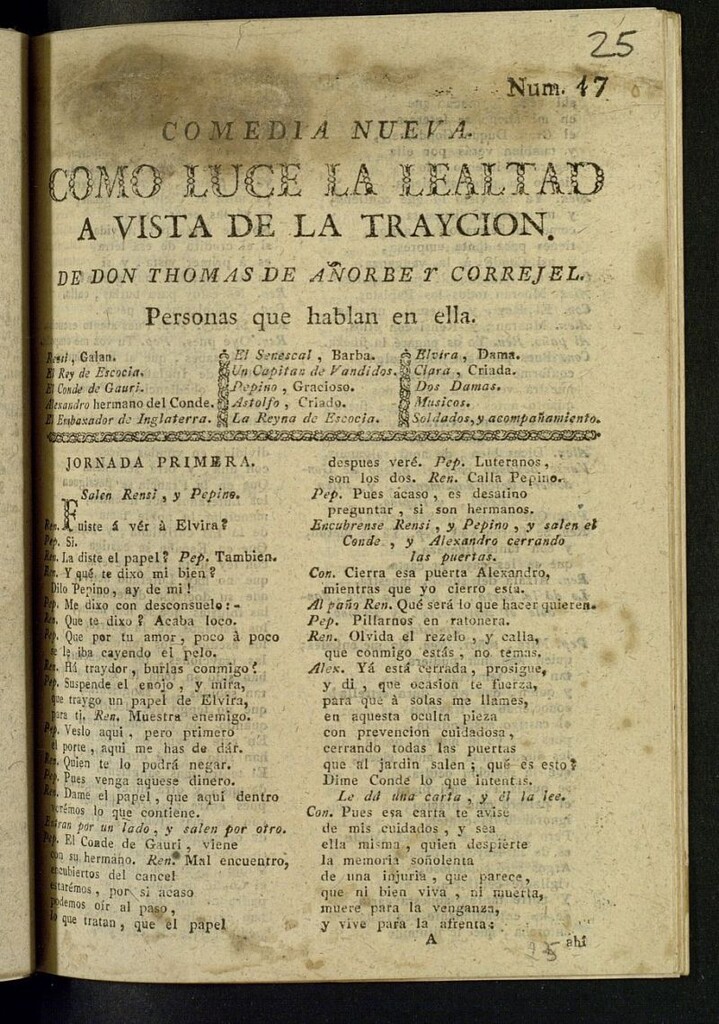 25
Num. 47
COMEDIA NUEVA.
COMO LUCE LA LEALTAD
A VISTA DE LA TRAYCION.
DE DON THOMAS DE AÑORBE Y CORREJEL.
Personas que hablan en ella.
Rensi, Galan.
El Rey de Escocia.
El Conde de Gauri.
Alexandro hermano del Conde.
El Embaxador de Inglaterra.
El Senescal, Barba.
Un Capitan de Vandidos.
Pepino, Gracioso.
Astolfo, Criado.
La Reyna de Escocia.
Elvira, Dama.
Clara, Criada.
Dos Damas.
Musicos.
Soldados, y acompañamiento.
JORNADA PRIMERA.
Salen Rensi, y Pepino.
Ren. Fuiste á vér à Elvira?
Pep. Si.
Ren. La diste el papel? Pep. Tambien.
Ren. Y qué te dixo mi bien?
Dilo Pepino, ay de mi!
Pep. Me dixo con desconsuelo:-
Ren. Que te dixo? Acaba loco.
Pep. Que por tu amor, poco à poco
se le iba cayendo el pelo.
Ren. Há traydor, burlas conmigo?
Pep. Suspende el enojo, y mira,
que traygo un papel de Elvira,
para ti. Ren. Muestra enemigo.
Pep. Veslo aqui, pero primero
el porte, aqui me has de dár.
Ren. Quien te lo podrá negar.
Pep. Pues venga aquese dinero.
Ren. Dame el papel, que aqui dentro
verémos lo que contiene.
Entran por un lado, y salen por otro.
Pep. El Conde de Gauri, viene
con su hermano. Ren. Mal encuentro,
encubiertos del cancel
estarémos, por si acaso
podemos oír al paso,
lo que tratan, que el papel
despues veré. Pep. Luteranos,
son los dos. Ren. Calla Pepino.
Pep. Pues acaso, es desatino
preguntar, si son hermanos.
Encubrense Rensi, y Pepino, y salen el
Conde, y Alexandro cerrando
las puertas.
Con. Cierra esa puerta Alexandro,
mientras que yo cierro esta.
Al paño Ren. Qué será lo que hacer quieren.
Pep. Pillarnos en ratonera.
Ren. Olvida el rezelo, y calla,
que conmigo estás, no temas.
Alex. Yá está cerrada, prosigue,
y di, que ocasion te fuerza,
para que à solas me llames,
en aquesta oculta pieza
con prevencion cuidadosa,
cerrando todas las puertas
que al jardin salen; qué es esto?
Dime Conde lo que intentas.
Le dá una carta, y él la lee.
Con. Pues esa carta te avise
de mis cuidados, y sea
ella misma, quien despierte
la memoria soñolenta
de una injuria, que parece,
que ni bien viva, ni muerta,
muere para la venganza,
y vive para la afrenta:
A
ahi